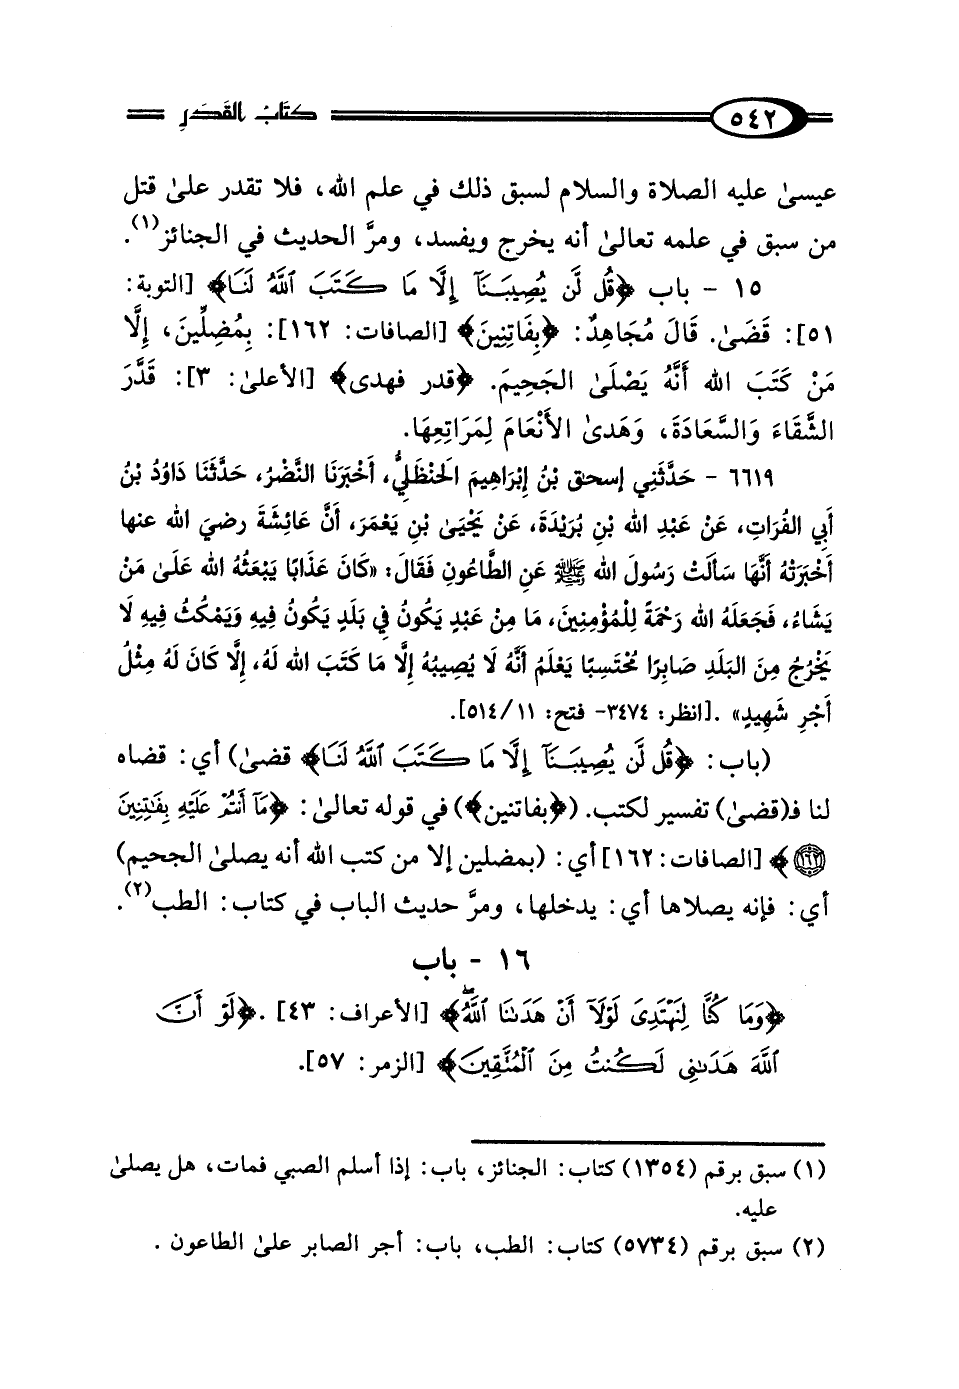 ٥٤٢ كتاب القدر
عيسىٰ عليه الصلاة والسلام لسبق ذلك في علم الله، فلا تقدر علىٰ قتل
من سبق في علمه تعالىٰ أنه يخرج ويفسد، ومرَّ الحديث في الجنائز(١).
١٥ - باب ﴿قُل لَّن يُصِيبَنَآ إِلَّا مَا كَتَبَ ٱللَّهُ لَنَا﴾ [التوبة:
٥١]: قَضَىٰ. قَالَ مُجَاهِدٌ: ﴿بِفَاتِنِينَ﴾ [الصافات: ١٦٢]: بِمُضِلِّينَ، إِلَّا
مَنْ كَتَبَ الله أَنَّهُ يَصْلَىٰ الجَحِيمَ. ﴿قدر فهدى﴾ [الأعلىٰ: ٣]: قَدَّرَ
الشَّقَاءَ وَالسَّعَادَةَ، وَهَدىٰ الأَنْعَامَ لِمَرَاتِعِهَا.
٦٦١٩ - حَدَّثَنِي إسحٰق بْنُ إِبْرَاهِيمَ الَحنْظَلِيُّ، أَخْبَرَنَا النَّضْرُ، حَدَّثَنَا دَاوُدُ بْنُ
أَبِي الفُرَاتِ، عَنْ عَبْدِ الله بْنِ بُرَيْدَةَ، عَنْ يَحْيَىٰ بْنِ يَعْمَرَ، أَنَّ عَائِشَةَ رضيَ الله عنها
أَخْبَرَتْهُ أَنَّهَا سَأَلَتْ رَسُولَ الله ﷺ عَنِ الطَّاعُونِ فَقَالَ: «كَانَ عَذَابًا يَبْعَثُهُ الله عَلَىٰ مَنْ
يَشَاءُ، فَجَعَلَهُ الله رَحْمَةً لِلْمُؤْمِنِينَ، مَا مِنْ عَبْدٍ يَكُونُ فِي بَلَدٍ يَكُونُ فِيهِ وَيَمْكُثُ فِيهِ لَا
يَخْرُجُ مِنَ البَلَدِ صَابِرًا مُحْتَسِبًا يَعْلَمُ أَنَّهُ لَا يُصِيبُهُ إِلَّا مَا كَتَبَ الله لَهُ، إِلَّا كَانَ لَهُ مِثْلُ
أَجْرِ شَهِيدٍ» .[انظر: ٣٤٧٤- فتح: ١١/ ٥١٤].
(باب: ﴿قُل لَّن يُصِيبَنَآ إِلَّا مَا كَتَبَ ٱللَّهُ لَنَا﴾ قضىٰ) أي: قضاه
لنا فـ(قضىٰ) تفسير لكتب. (﴿بفاتنين﴾) في قوله تعالىٰ: ﴿مَآ أَنتُمْ عَلَيْهِ بِفَٰتِنِينَ
١٦٢﴾ [الصافات: ١٦٢] أي: (بمضلين إلا من كتب الله أنه يصلىٰ الجحيم)
أي: فإنه يصلاها أي: يدخلها، ومرَّ حديث الباب في كتاب: الطب(٢).
١٦ - باب
﴿وَمَا كُنَّا لِنَهْتَدِىَ لَوْلَآ أَنْ هَدَىٰنَا ٱللَّهُۖ﴾ [الأعراف: ٤٣] .﴿لَوْ أَنَّ
ٱللَّهَ هَدَىٰنِى لَكُنتُ مِنَ ٱلْمُتَّقِينَ﴾ [الزمر: ٥٧].
(١) سبق برقم (١٣٥٤) كتاب: الجنائز، باب: إذا أسلم الصبي فمات، هل يصلىٰ
عليه.
(٢) سبق برقم (٥٧٣٤) كتاب: الطب، باب: أجر الصابر علىٰ الطاعون .